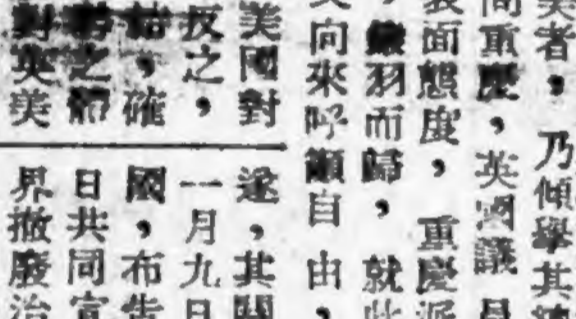 美者，乃傾舉其
問重慶，英國議員
表面態度，重慶派
，鎩羽而歸，就此
向來呼籲自由，
美國對
反之，
結，確
之體
對英美
遂，其關
一月九日
國，布告
日共同宣
界撤廢治